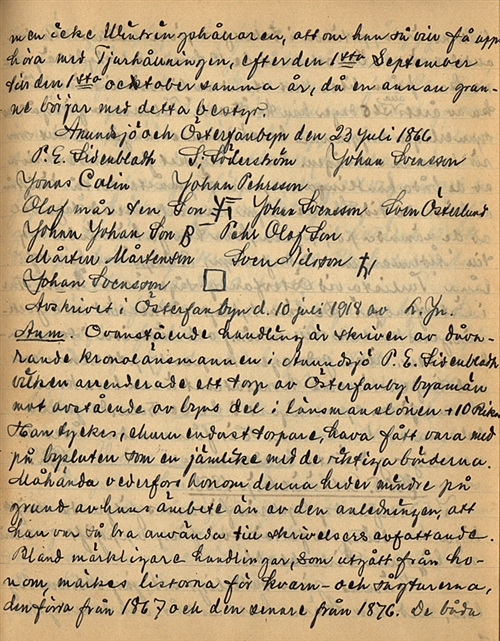 men icke Wintringshållaren, att om han så vill få upp
höra med Tjurhållningen, efter den 1sta September
till den 1sta ocktober samma år, då en annan gran-
ne börjar med detta bestyr.
Anundsjö och Österfanbyn den 23 Juli 1866
P. E. Sidenbladh S: Söderström Johan Svensson
Jonas Calin Johan Pehrsson
Olof mår ten Son Johan Svensson Sven Österlund
Johan Johan Son B Pehr Olof Son
Mårten Mårtenson Sven Nilsson
Johan Svensson
Avskrivet i Österfanbyn d. 10 juli 1918 av
Anm. Ovanstående handling är skriven av dåva-
rande kronolänsmannen i Anundsjö P. E. Sidenbladh
vilken arrenderade ett torp av Österfanby byamän
mot avstående av byns del i länsmanslönen + 10 Riksd
Han tyckes, ehuru endast torpare, hava fått vara med
på bysluten som en jämlike med de riktiga bönderna.
Måhända vederfors honom denna heder mindre på
grund av hans ämbete än av den anledningen, att
han var så bra använda till skrivelsers avfattande.
Bland märkligare handlingar, som utgått från ho-
nom, märkes listorna för kvarn- och sågturerna,
den förra från 1867 och den senare från 1876. De båda